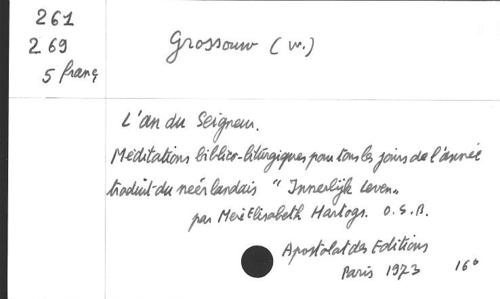 261
269
5 franç
Grossouw (W.)
L'an du Seigneur.
Méditations biblico-liturgiques pour tous les jours de l'année
traduit du néérlandais "Innerlijk Leven"
par Mère Elisabeth Hartogs. O.S.B.
Apostolat des Editions
Paris 1973 16°